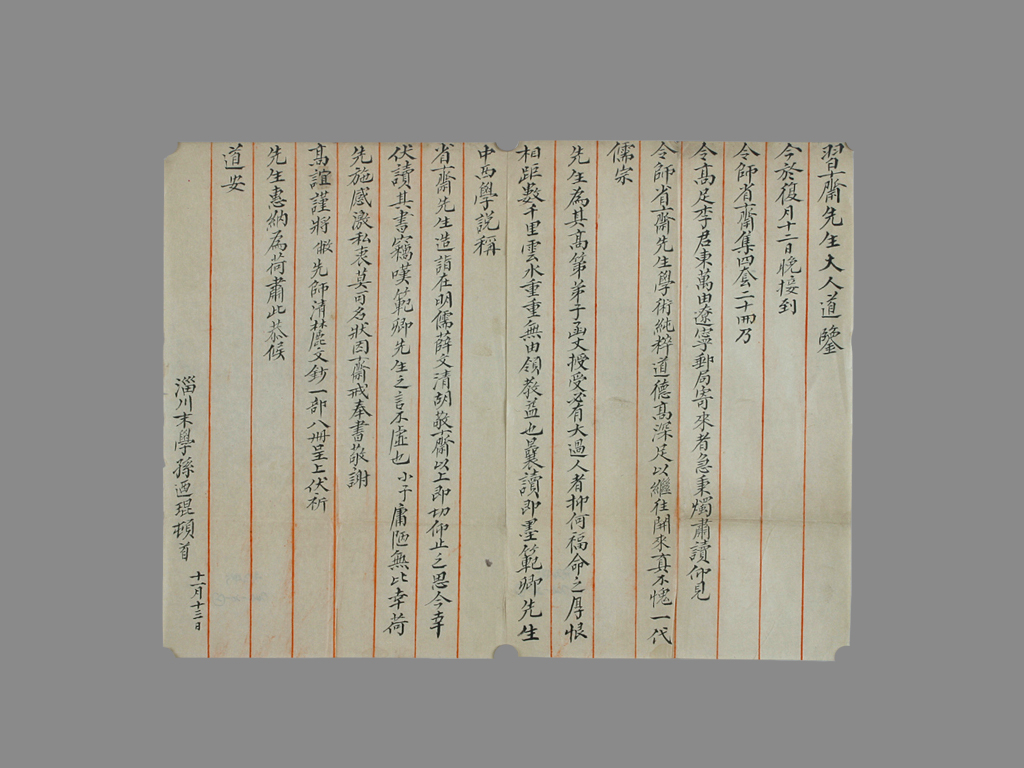 習齋先生大人道鑒
今於復月十二日晚接到
令師省齋集四套二十冊乃
令高足李君東萬由遼寧郵局寄來者急秉燭肅讀仰見
令師省齋先生學術純粹道德高深足以繼往開來真不愧一代
儒宗
先生為其高第弟子函丈授受必有大過人者抑何福命之厚恨
相距數千里雲水重重無由領教益也曩讀即墨範卿先生
中西學說稱
省齋先生造詣在明儒薛文清胡敬齋以上即切仰止之思今幸
伏讀其書竊嘆範卿先生之言不虛也小子庸陋無比幸荷
先施感激私衷莫可名狀因齋戒奉書敬謝
高誼謹將敝先師清麓文鈔一部八冊呈上伏祈
先生惠納為荷肅此恭候
道安
淄川末學孫迺琨頓首
十一月十三日